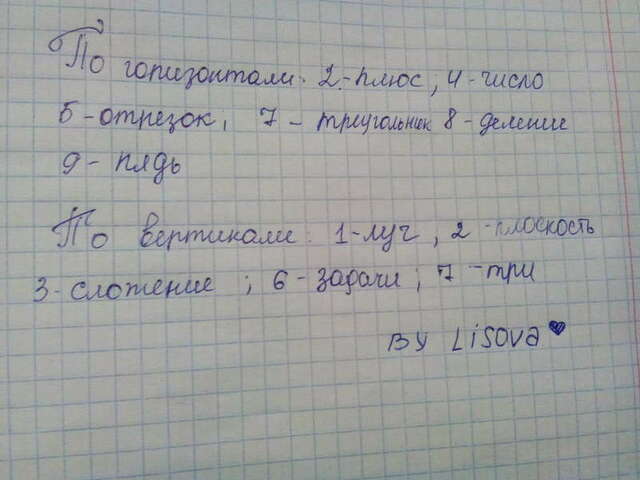 По горизонтали: 2-плюс, 4-число
5-отрезок, 7-треугольник 8-деление
9-пядь
По вертикали: 1-луч, 2-плоскость
3-сложение; 6-задачи; 7-три
BY Lisova